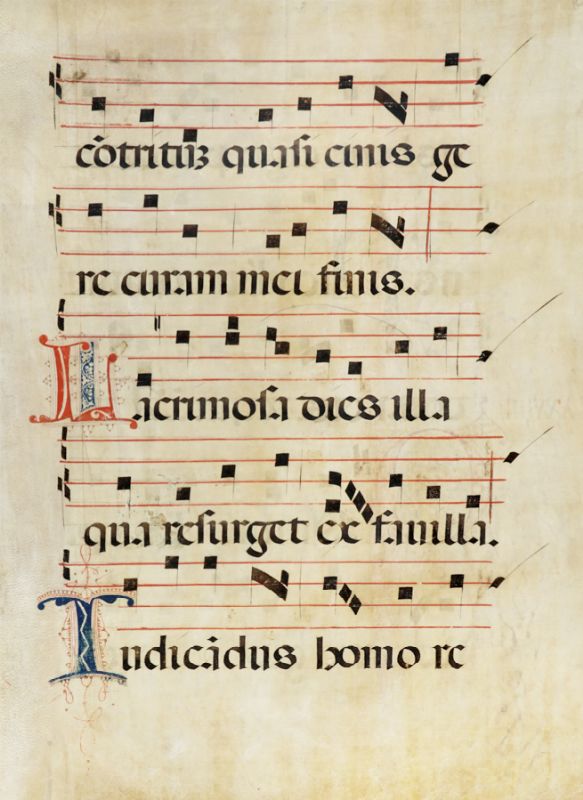 cõtritũ quasi cinis ge
re curam mei finis.
Lacrimosa dies illa
qua resurget ex fauilla.
Iudicãdus homo re